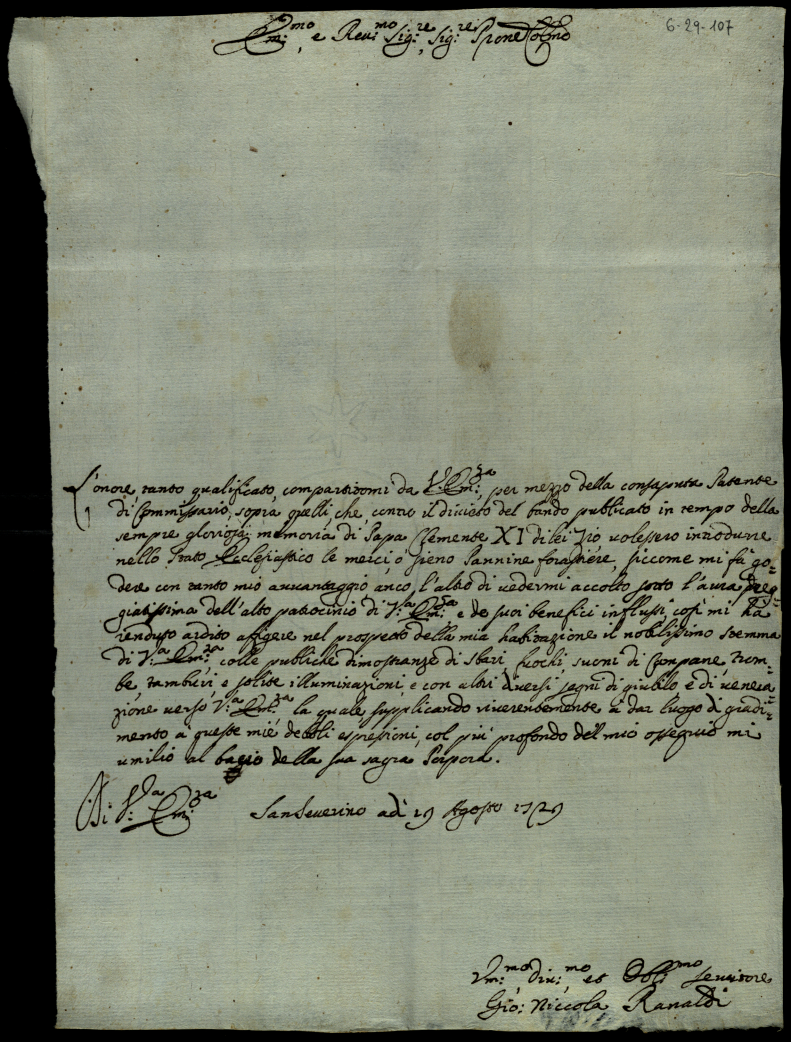 6-29-107
Em:mo, e Reu:mo Sig:re, Sig:re Prone Colmo
L'onore, tanto qualificato, compartitomi da V: Em:za, per mezzo della consaputa Patente
di Commissario, sopra quelli, che, contro il divieto del bando publicato in tempo della
sempre gloriosa memoria di Papa Clemente XI di lei Zio volessero introdurre
nello Stato Ecclesiastico le merci, ò sieno Pannine forastiere, siccome mi fà go-
dere con tanto mio auuantaggio anco l'altro di vedermi accolto sotto l'aura preg-
giatissima dell'alto patrocinio di V:a Em:za e de suoi benefici influssi, così mi hà
renduto ardito affigere nel prospetto della mia habitazione il nobilissimo stemma
di V:a Em:za colle publiche dimostranze di sbari, fuochi, suoni di Campane, Trom-
be, tamburi e solite illuminazioni, e con altri diversi segni di giubilo, e di venera-
zione verso V:a Em:za la quale supplicando riverentemente à dar luogo di gradi-
mento à queste mie deboli espressioni, col più profondo del mio ossequio mi
umilio al bacio della sua sagra Porpora.
Di V:a Em:za
SanSeverino adì 19 Agosto 1729
Vm:mo diu:mo et Obli:mo servitore
Gio: Niccola Ranaldi